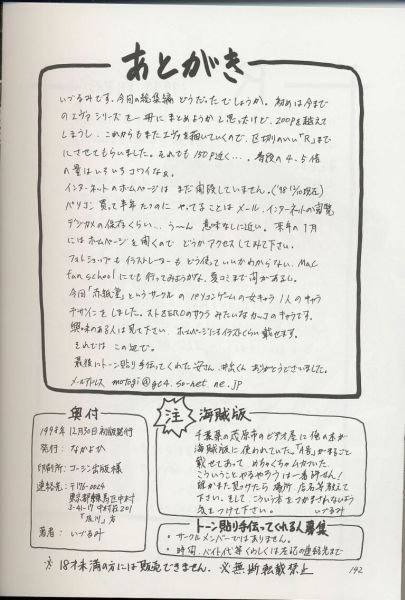 あとがき
いづるみです。今回の総集編どうだったでしょうか。初めは今まで
のエヴァシリーズを一冊にまとめようかと思ったけど、200Pを越えて
しまうし、これからもまたエヴァを描いていくので、区切りのいい「R」まで
にさせてもらいました。それでも150P近く…。普段の4、5倍
の量はいろいろコワイなぁ。
インターネットのホームページはまだ開設していません。('98 12/10現在)
パソコン買って半年たつのに やってることはメール、インターネットの閲覧
デジカメの保存くらい…。う〜ん 意味なしに近い。来年の1月
にはホームページを開くので どうかアクセスしてみて下さい。
フォトショップもイラストレーターもどう使っていいかわからない。Mac
fan schoolにでも行ってみようかな。夏コミまで間があるし。
今回「赤紙堂」というサークルのパソコンゲームの女キャラ1人のキャラ
デザインをしました。ストZEROのサクラみたいなカッコのキャラです。
興味のある人は見て下さい。ホームページにもイラストくらい載せます。
それでは この辺で。
最後にトーン貼り手伝ってくれた安さん、井出くん ありがとうございました。
メールアドレス motogi@gc4.so-net.ne.jp
奥付
1998年12月30日初版発行
発行: なかよひか
印刷所: コーシン出版様
連絡先: 〒176-0024
東京都練馬区中村
3-41-17 中村荘201
方
著者: いづるみ
注 海賊版
千葉県の茂原市のビデオ屋に俺の本が
海賊版に使われていた。「A号」がまるごと
載せてあって めちゃくちゃムカついた。
こういうことやるやろうは一番許せん!
誰かまた見つけたら 場所、店名等教えて
下さい。そして、こういう本をつかまされないよう
気をつけて下さい。 いづるみ
トーン貼り手伝ってくれる人募集
・サークルメンバーではありません。
・時間、バイト代等くわしくは左記の連絡先まで
※18才未満の方には販売できません。※無断転載禁止
192